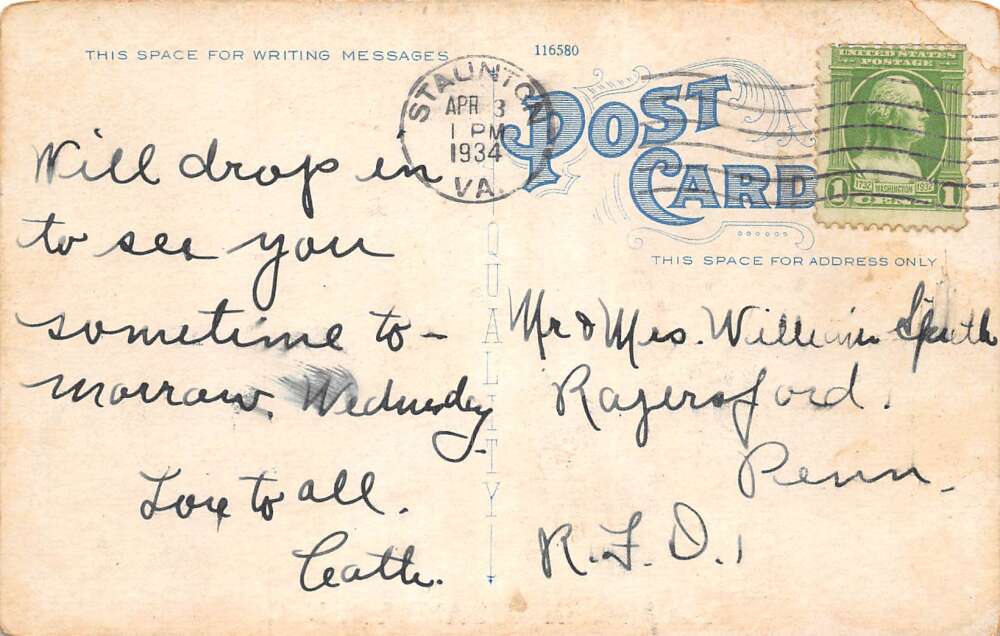 THIS SPACE FOR WRITING MESSAGES
116580
STAUNTON
APR 3
1 PM
1934
VA.
POST
CARD
UNITED STATES
POSTAGE
1732 WASHINGTON 1932
1 CENT 1
THIS SPACE FOR ADDRESS ONLY
QUALITY
Will drop in
to see you
sometime to-
morrow. Wednesday
Love to all.
Cath.
Mr & Mrs. William
Royersford.
Penn.
R.F.D.1